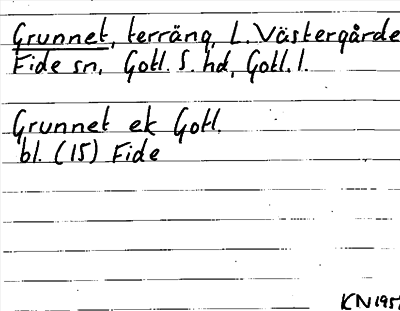 Grunnet, terräng, L. Västergårde
Fide sn, Gotl. S. hd, Gotl. l.
Grunnet ek Gotl.
bl. (15) Fide
KN 195